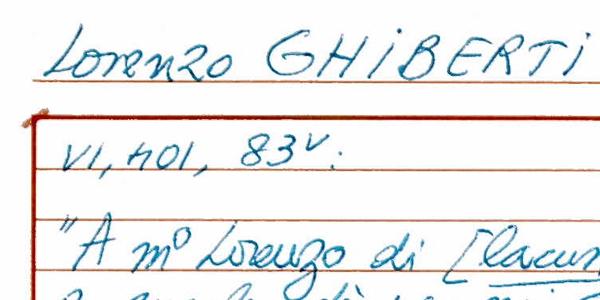 Lorenzo GHiBERTi
VI, 401, 83v.
"A mº Lorenzo di [lacun